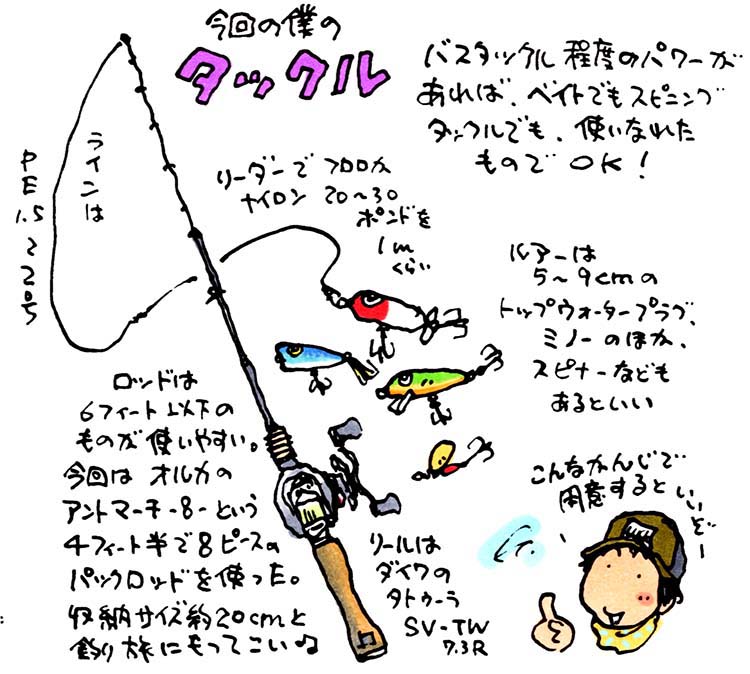 今回の僕の
タックル
バスタックル程度のパワーが
あれば、ベイトでもスピニング
タックルでも、使いなれた
ものでOK!
ラインは
PE1.5〜2号
リーダーでフロロか
ナイロン20〜30
ポンドを
1m
くらい
ルアーは
5〜9cmの
トップウォータープラグ、
ミノーのほか、
スピナーなども
あるといい
ロッドは
6フィート以下の
ものが使いやすい。
今回はオルカの
アントマーチ-8-という
4フィート半で8ピースの
パックロッドを使った。
収納サイズ約20cmと
釣り旅にもってこい♫
リールは
ダイワの
タトゥーラ
SV-TW
7.3R
こんなかんじで
用意するといいぞー